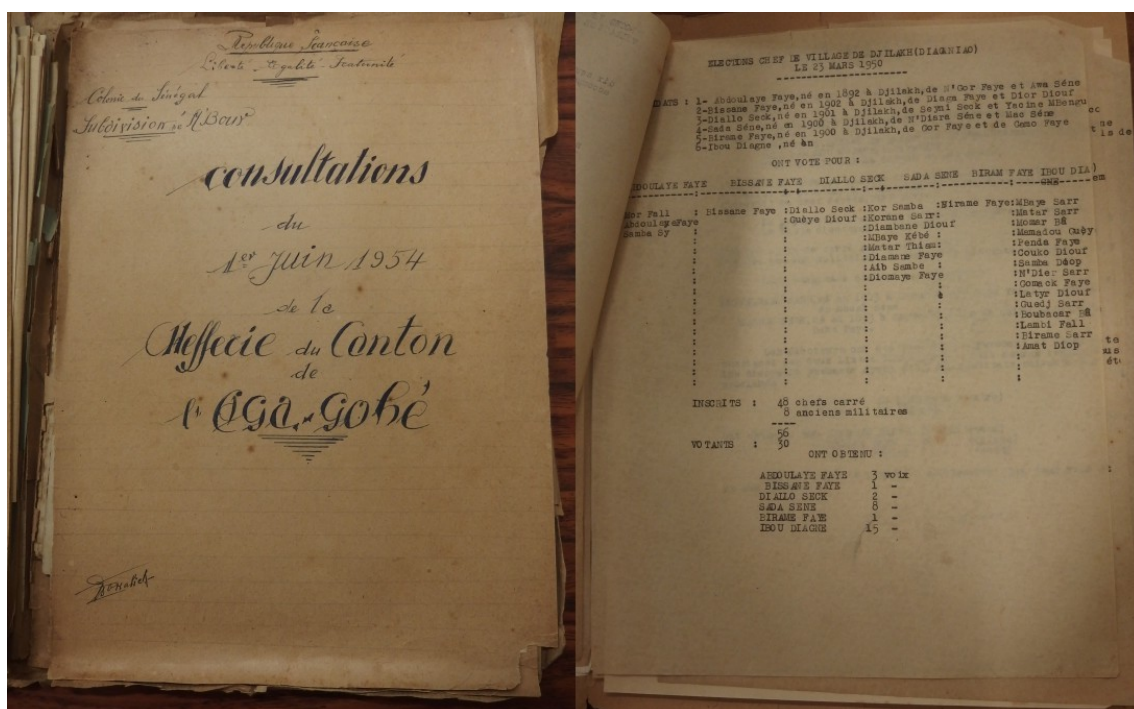 République Française
Liberté - Egalité - Fraternité
Colonie du Sénégal
Subdivision de M'Bour
consultations
du
1er Juin 1954
de la
Chefferie du Canton
de
ELECTIONS CHEF DE VILLAGE DE DJILAKH(DIAGNIAO)
LE 23 MARS 1950
DATS : 1- Abdoulaye Faye,né en 1892 à Djilakh,de N'Gor Faye et Awa Séne
2-Bissane Faye,né en 1902 à Djilakh,de Diaga Faye et Dior Diouf
3-Diallo Seck,né en 1901 à Djilakh,de Seyni Seck et Yacine MBengu
4-Sada Séne,né en 1900 à Djilakh,de N'Diara Séne et Mac Séne
5-Birome Faye,né en 1900 à Djilakh,de Gor Faye et de Como Faye
6-Ibou Diagne ,né en
ONT VOTE POUR :
BDOULAYE FAYE BISSANE FAYE DIALLO SECK SADA SENE BIRAM FAYE IBOU DIA)
GNE
Mor Fall : Bissane Faye :Diallo Seck :Kor Samba :Birame Faye:MBaye Sarr
AbdoulayeFaye : :Guèye Diouf :Korane Sarr: :Matar Sarr
Samba Sy : : :Diambane Diouf :Momar Bâ
: : :MBaye Kébé : :Mamadou Guèy
: : :Matar Thiam: :Penda Faye
: : :Diamane Faye :Couko Diouf
: : :Aib Sambe : :Samba Diop
: : :Diomaye Faye :N'Dier Sarr
: : : : :Gomack Faye
: : : : :Latyr Diouf
: : : : :Guedj Sarr
: : : : :Boubacar Bâ
: : : : :Lambi Fall
: : : : :Birame Sarr
: : : : :Amat Diop
INSCRITS : 48 chefs carré
8 anciens militaires
56
VOTANTS : 30
ONT OBTENU :
ABDOULAYE FAYE 3 voix
BISSANE FAYE 1 -
DIALLO SECK 2 -
SADA SENE 8 -
BIRAME FAYE 1 -
IBOU DIAGNE 15 -